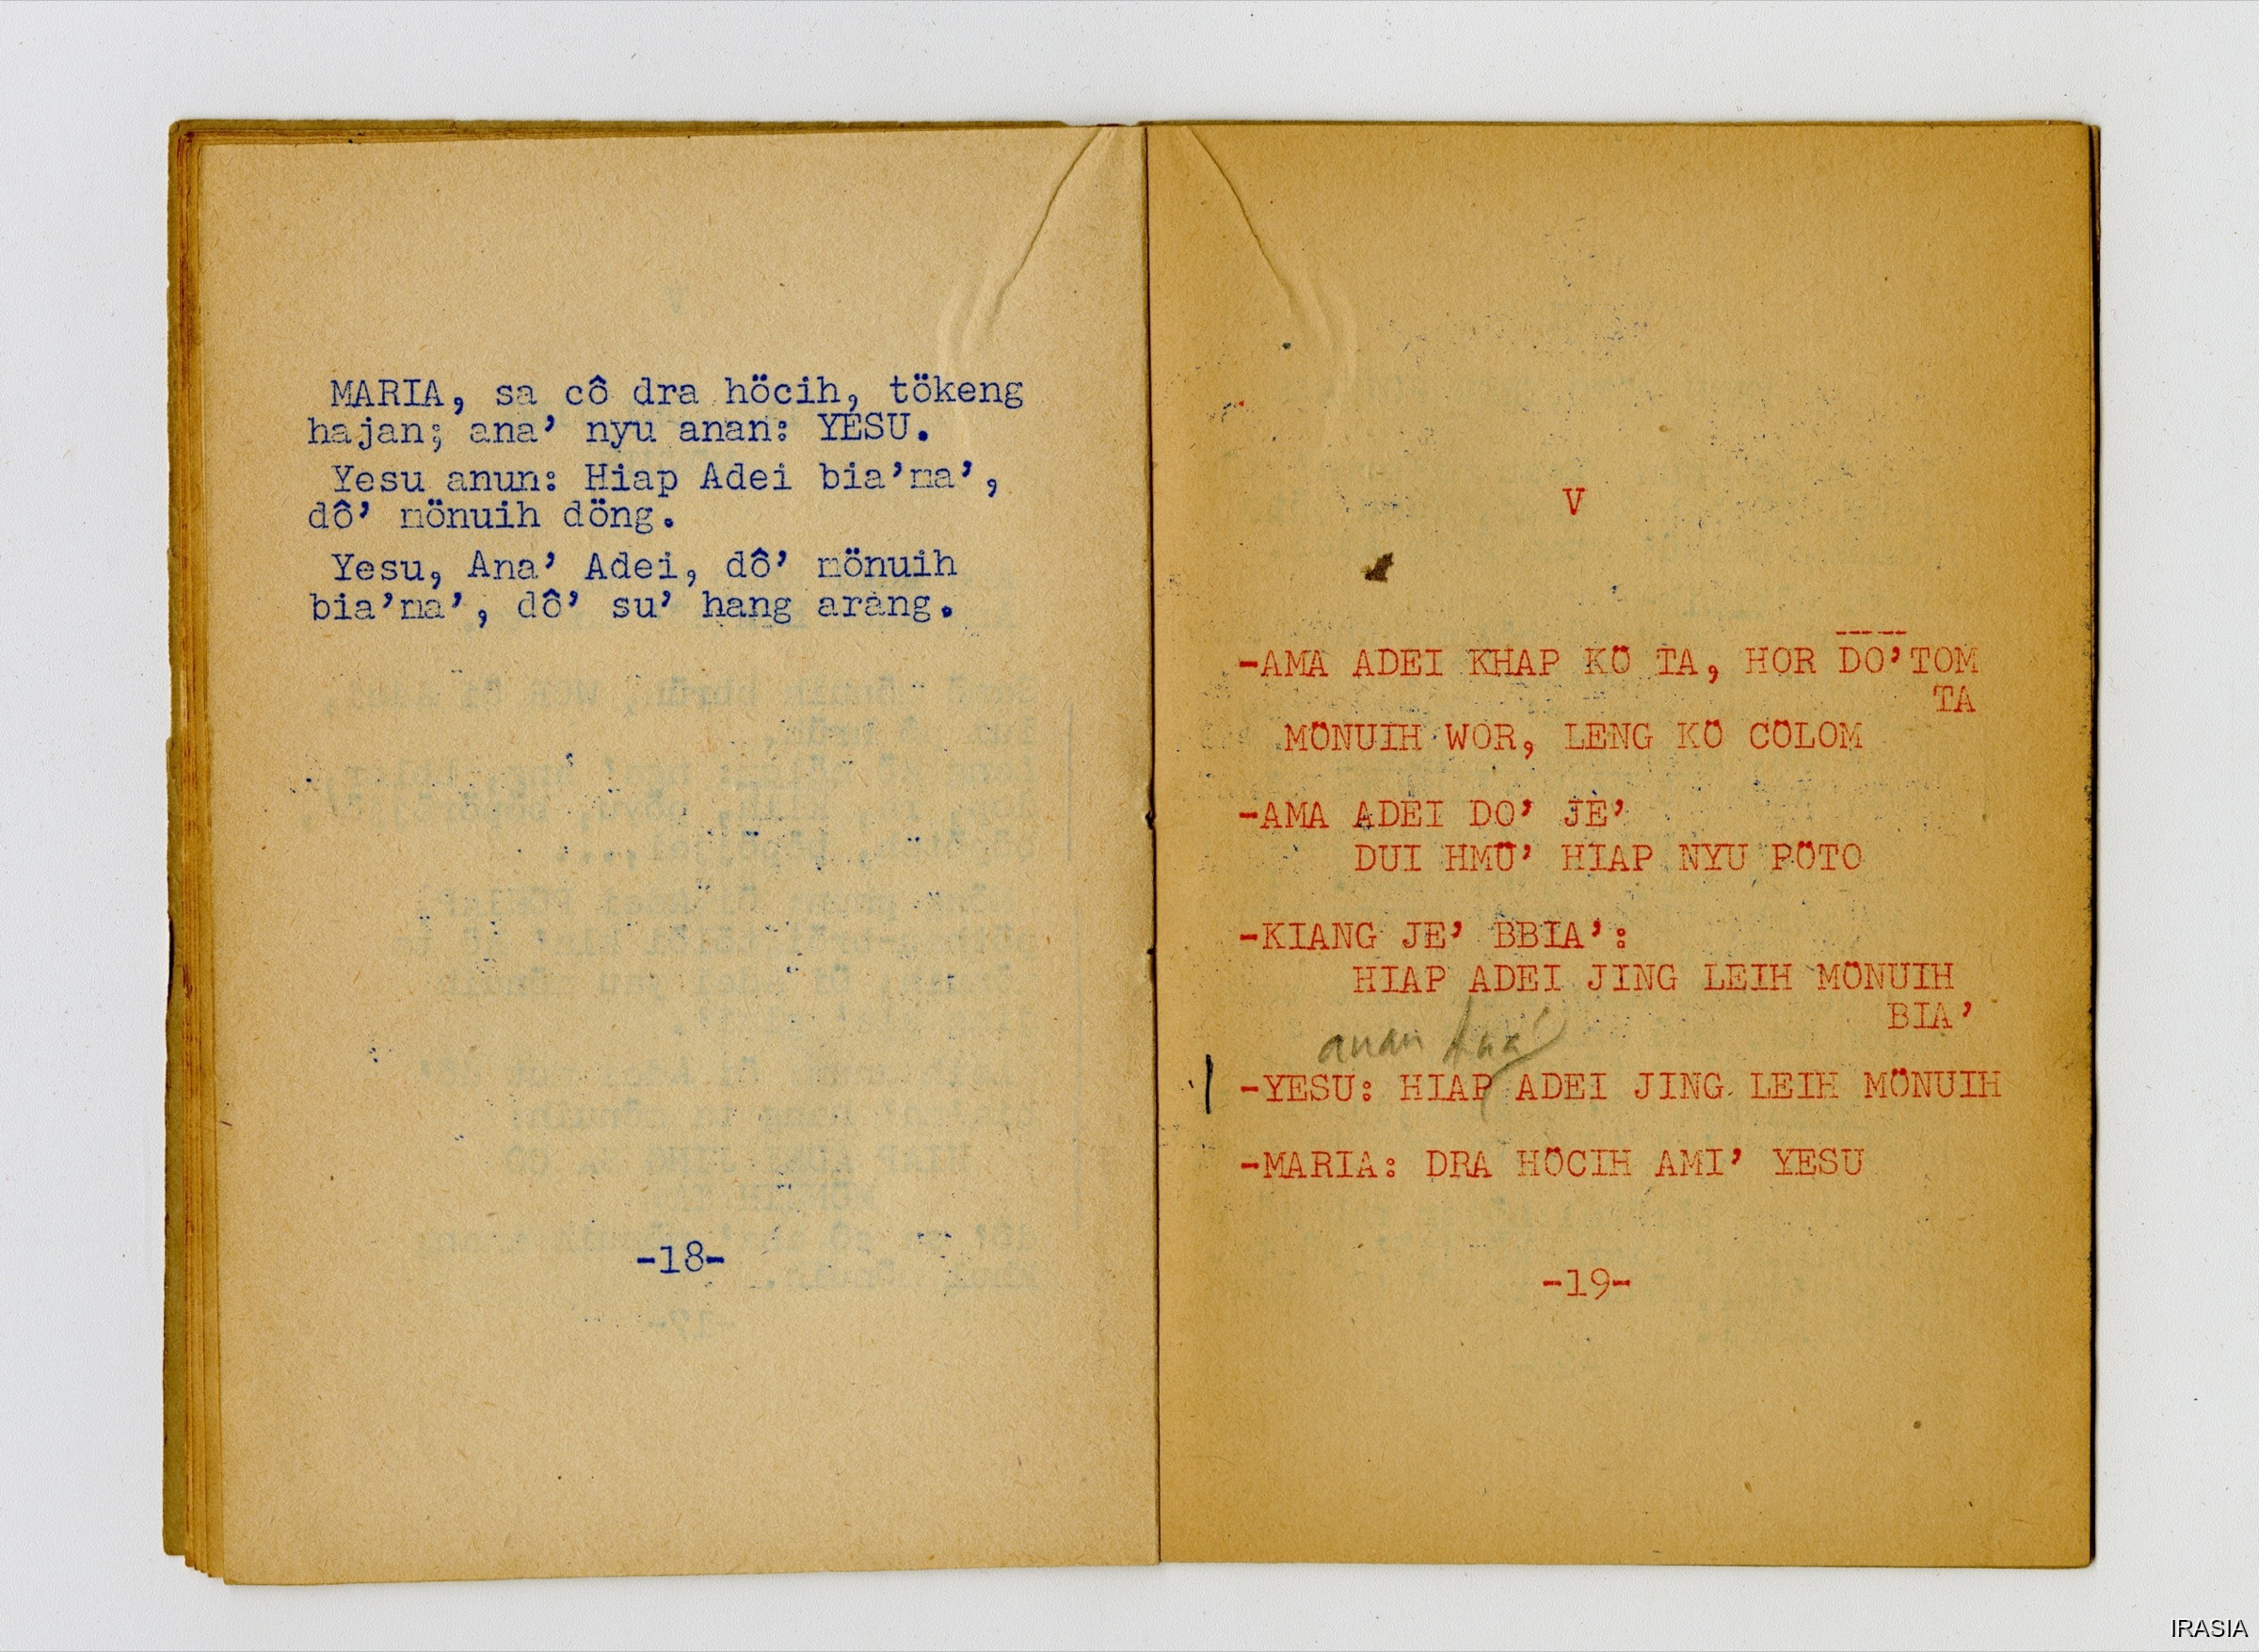 MARIA, sa cô dra höcih, tökeng
hajan; ana’ nyu anan: YESU.
Yesu anun: Hiap Adei bia’ma’,
dô’ mönuih döng.
Yesu, Ana’ Adei, dô’ mönuih
bia’ma’, dô’ su’ hang arang.
-18-
V
-AMA ADEI KHAP KÖ TA, HOR DO’TOM
TA
MÖNUIH WOR, LENG KÖ CÖLOM
-AMA ADEI DO’ JE’
DUI HMÜ’ HIAP NYU PÖTO
-KIANG JE’ BBIA’:
HIAP ADEI JING LEIH MÖNUIH
BIA’
anan Ana’
-YESU: HIAP ADEI JING LEIH MÖNUIH
-MARIA: DRA HÖCIH AMI’ YESU
-19-
IRASIA